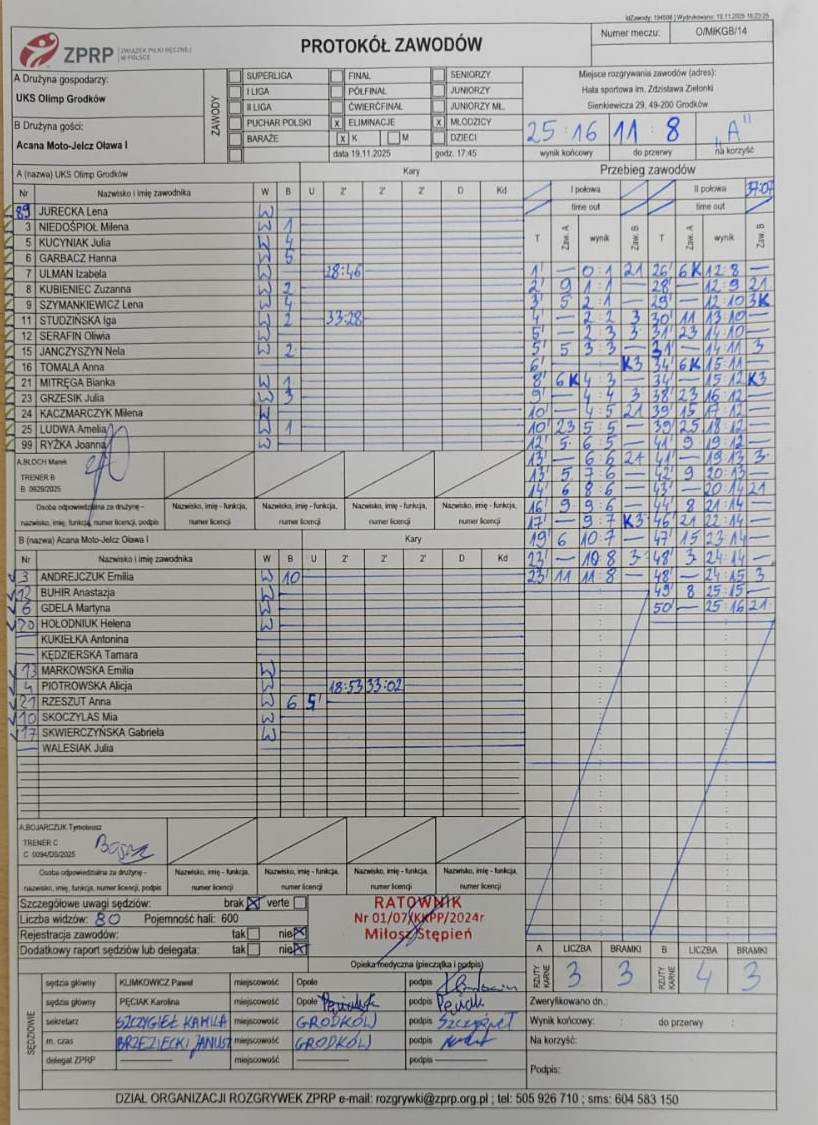 IdZawody: 194508 | Wydrukowano: 19.11.2025 16:23:25
ZPRP ZWIĄZEK PIŁKI RĘCZNEJ W POLSCE
PROTOKÓŁ ZAWODÓW
Numer meczu: O/MłKGB/14
A Drużyna gospodarzy:
UKS Olimp Grodków
B Drużyna gości:
Acana Moto-Jelcz Oława I
ZAWODY
SUPERLIGA FINAŁ SENIORZY
I LIGA PÓŁFINAŁ JUNIORZY
II LIGA ĆWIERĆFINAŁ JUNIORZY MŁ.
PUCHAR POLSKI X ELIMINACJE X MŁODZICY
BARAŻE X K M DZIECI
data 19.11.2025 godz. 17:45
Miejsce rozgrywania zawodów (adres):
Hala sportowa im. Zdzisława Zielonki
Sienkiewicza 29, 49-200 Grodków
25:16 11:8 "A"
wynik końcowy do przerwy na korzyść
A (nazwa) UKS Olimp Grodków Kary
Nr Nazwisko i imię zawodnika W B U 2' 2' 2' D Kd
89 JURECKA Lena W
3 NIEDOŚPIOŁ Milena W 1
5 KUCYNIAK Julia W 4
6 GARBACZ Hanna W 5
7 ULMAN Izabela W 28:46
8 KUBIENIEC Zuzanna W 2
9 SZYMANKIEWICZ Lena W 4
11 STUDZIŃSKA Iga W 2 33:28
12 SERAFIN Oliwia W
15 JANCZYSZYN Nela W 2
16 TOMALA Anna W
21 MITRĘGA Bianka W 1
23 GRZESIK Julia W 3
24 KACZMARCZYK Milena W
25 LUDWA Amelia W 1
99 RYŻKA Joanna W
A.BŁOCH Marek
TRENER B
B 0629/2025
Osoba odpowiedzialna za drużynę - nazwisko, imię, funkcja, numer licencji, podpis
Nazwisko, imię - funkcja, numer licencji
Nazwisko, imię - funkcja, numer licencji
Nazwisko, imię - funkcja, numer licencji
Nazwisko, imię - funkcja, numer licencji
B (nazwa) Acana Moto-Jelcz Oława I Kary
Nr Nazwisko i imię zawodnika W B U 2' 2' 2' D Kd
3 ANDREJCZUK Emilia W 10
12 BUHIR Anastazja W
6 GDELA Martyna W
20 HOŁODNIUK Helena W
KUKIEŁKA Antonina
KĘDZIERSKA Tamara
13 MARKOWSKA Emilia W
4 PIOTROWSKA Alicja W 18:53 33:02
21 RZESZUT Anna W 6 5'
10 SKOCZYLAS Mia W
17 SKWIERCZYŃSKA Gabriela W
WALESIAK Julia
A.BOJARCZUK Tymoteusz
TRENER C
C 0094/DS/2025
Osoba odpowiedzialna za drużynę - nazwisko, imię, funkcja, numer licencji, podpis
Nazwisko, imię - funkcja, numer licencji
Nazwisko, imię - funkcja, numer licencji
Nazwisko, imię - funkcja, numer licencji
Nazwisko, imię - funkcja, numer licencji
Przebieg zawodów
I połowa II połowa 37:07
time out time out
T Zaw. A wynik Zaw. B T Zaw. A wynik Zaw. B
1' — 0:1 21 26' 6K 12:8 —
2' 9 1:1 — 28' — 12:9 21
3' 5 2:1 — 29' — 12:10 3K
4' — 2:2 3 30' 11 13:10 —
5' — 2:3 3 31' 23 14:10 —
5' 5 3:3 — 31' — 14:11 3
6' K3 34' 6K 15:11 —
8' 6K 4:3 — 34' — 15:12 K3
9' — 4:4 3 38' 23 16:12 —
10' — 4:5 21 39' 15 17:12 —
10' 23 5:5 — 39' 25 18:12 —
12' 5 6:5 — 41' 9 19:12 —
13' — 6:6 21 41' — 19:13 3
13' 5 7:6 — 42' 9 20:13 —
14' 6 8:6 — 43' — 20:14 21
16' 9 9:6 — 44' 8 21:14 —
17' — 9:7 K3 46' 21 22:14 —
19' 6 10:7 — 47' 15 23:14 —
23' — 10:8 3 48' 3 24:14 —
23' 11 11:8 — 48' — 24:15 3
49' 8 25:15 —
50' — 25:16 21
Szczegółowe uwagi sędziów: brak X verte
Liczba widzów: 80 Pojemność hali: 600
Rejestracja zawodów: tak nie X
Dodatkowy raport sędziów lub delegata: tak nie X
RATOWNIK
Nr 01/07/KKPP/2024r
Miłosz Stępień
Opieka medyczna (pieczątka i podpis)
A LICZBA BRAMKI B LICZBA BRAMKI
RZUTY KARNE 3 3 RZUTY KARNE 4 3
SĘDZIOWIE
sędzia główny KLIMKOWICZ Paweł miejscowość Opole podpis
sędzia główny PĘCIAK Karolina miejscowość Opole podpis Pęciak
sekretarz SZCZYGIEŁ KAMILA miejscowość GRODKÓW podpis Szczygieł
m. czas BRZEZIECKI JANUSZ miejscowość GRODKÓW podpis
delegat ZPRP miejscowość podpis
Zweryfikowano dn.:
Wynik końcowy: : do przerwy :
Na korzyść:
Podpis:
DZIAŁ ORGANIZACJI ROZGRYWEK ZPRP e-mail: rozgrywki@zprp.org.pl ; tel: 505 926 710 ; sms: 604 583 150